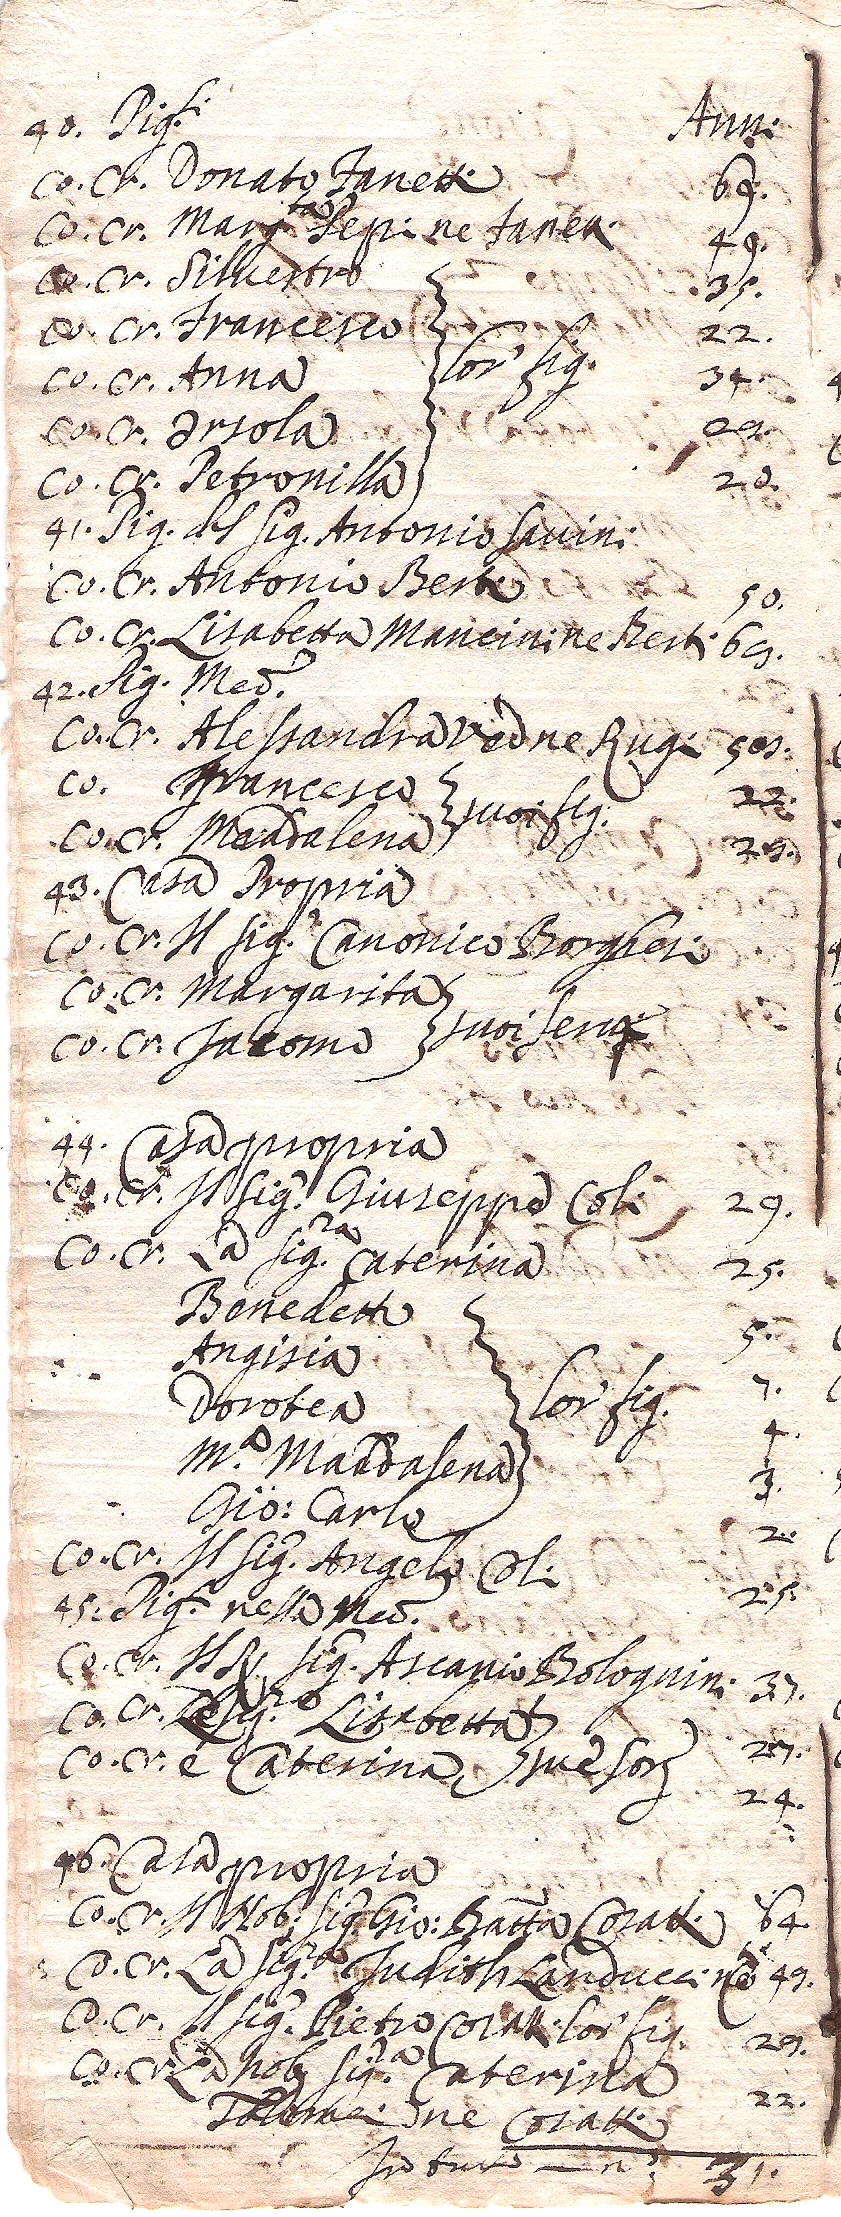 40. Pig.li Anni
Co. Cr. Donato Fanetti 69.
Co. Cr. Marg.ta Pepi ne Fanetti 49.
Co. Cr. Silvestro 35.
Co. Cr. Francesco 22.
Co. Cr. Anna lor' fig. 34.
Co. Cr. Orsola 29.
Co. Cr. Petronilla 20.
41. Pig. del Sig. Antonio Savini
Co. Cr. Antonio Berti 50.
Co. Cr. Lisabetta Mancini ne Berti 69.
42. Pig. Med.o
Co. Cr. Alessandra Ved ne Rugi 50.
Co. Francesco suoi fig. 22.
Co. Cr. Maddalena 29.
43. Casa Propria
Co. Cr. Il Sig.r Canonico Borghesi
Co. Cr. Margarita
Co. Cr. Jacomo suoi Serv.
44. Casa propria
Co. Cr. Il Sig.r Giuseppe Coli 29.
Co. Cr. La Sig.ra Caterina 25.
Benedetto 5.
Angisia 7.
Dorotea lor' fig. 4.
M.a Maddalena 3.
Gio: Carlo 2.
Co. Cr. Il Sig.r Angelo Coli 25.
45. Pig.li nella Med.
Co. Cr. Il R. Sig.r Ascanio Bolognini 37.
Co. Cr. Le Sig.re Lisabetta 27.
Co. Cr. e Caterina sue Sor. 24.
46. Casa propria
Co. Cr. Il Nob. Sig.r Gio: Batta Cosatti 64.
Co. Cr. La Sig.ra Judith Landucci ne 49.
Co. Cr. Il Sig.r Pietro Cosatti lor' fig. 29.
Co. Cr. La Nob. Sig.ra Caterina 22.
Tolomei ne Cosatti
In tutto n.o 31.